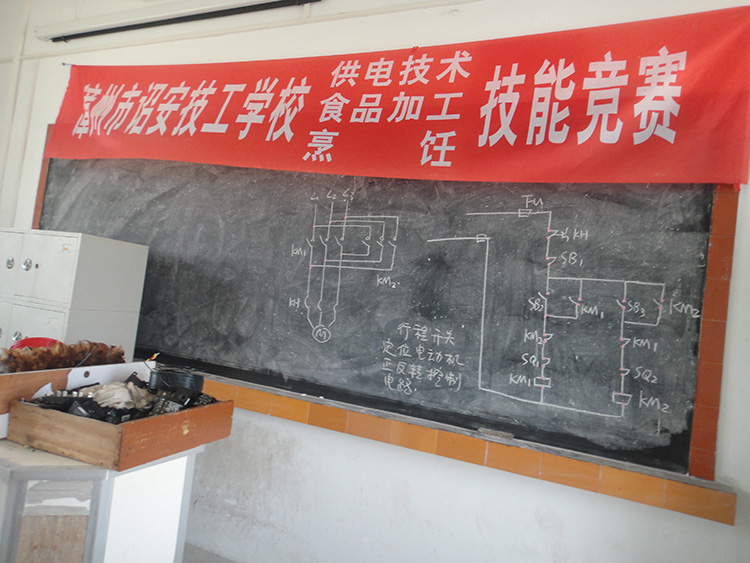 漳州市诏安技工学校
供电技术
食品加工
烹饪
技能竞赛
L1 L2 L3
KM1
KM2
KH
M
FU
KH
SB1
SB2 KM1 SB3 KM2
KM2 KM1
SQ1 SQ2
KM1 KM2
行程开关
定位电动机
正反转控制
电路